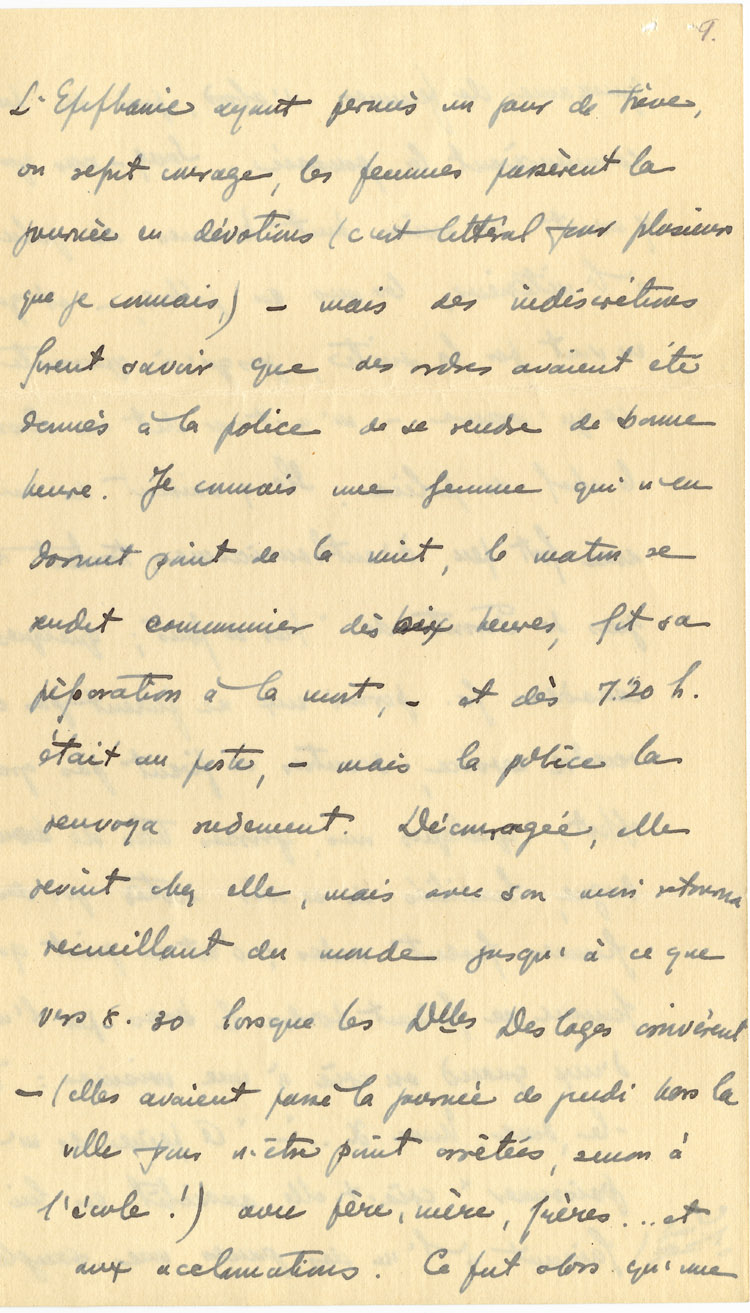 9.
L'Epiphanie ayant permis un jour de trève,
on reprit courage, les femmes passèrent la
journée en dévotions (c'est littéral pour plusieurs
que je connais,) – mais des indiscrétions
firent savoir que des ordres avaient été
donnés à la police de se rendre de bonne
heure. Je connais une femme qui n'en
dormit point de la nuit, le matin se
rendit communier dès six heures, fit sa
préparation à la mort, – et dès 7.20 h.
était au poste, – mais la police la
renvoya rudement. Découragée, elle
revint chez elle, mais avec son mari retourna
recueillant du monde jusqu'à ce que
vers 8.30 lorsque les Dlles Desloges arrivèrent
– (elles avaient passé la journée de jeudi hors la
ville pour n'être point arrêtées, sinon à
l'école!) avec père, mère, frères... et
aux acclamations. Ce fut alors qu'une